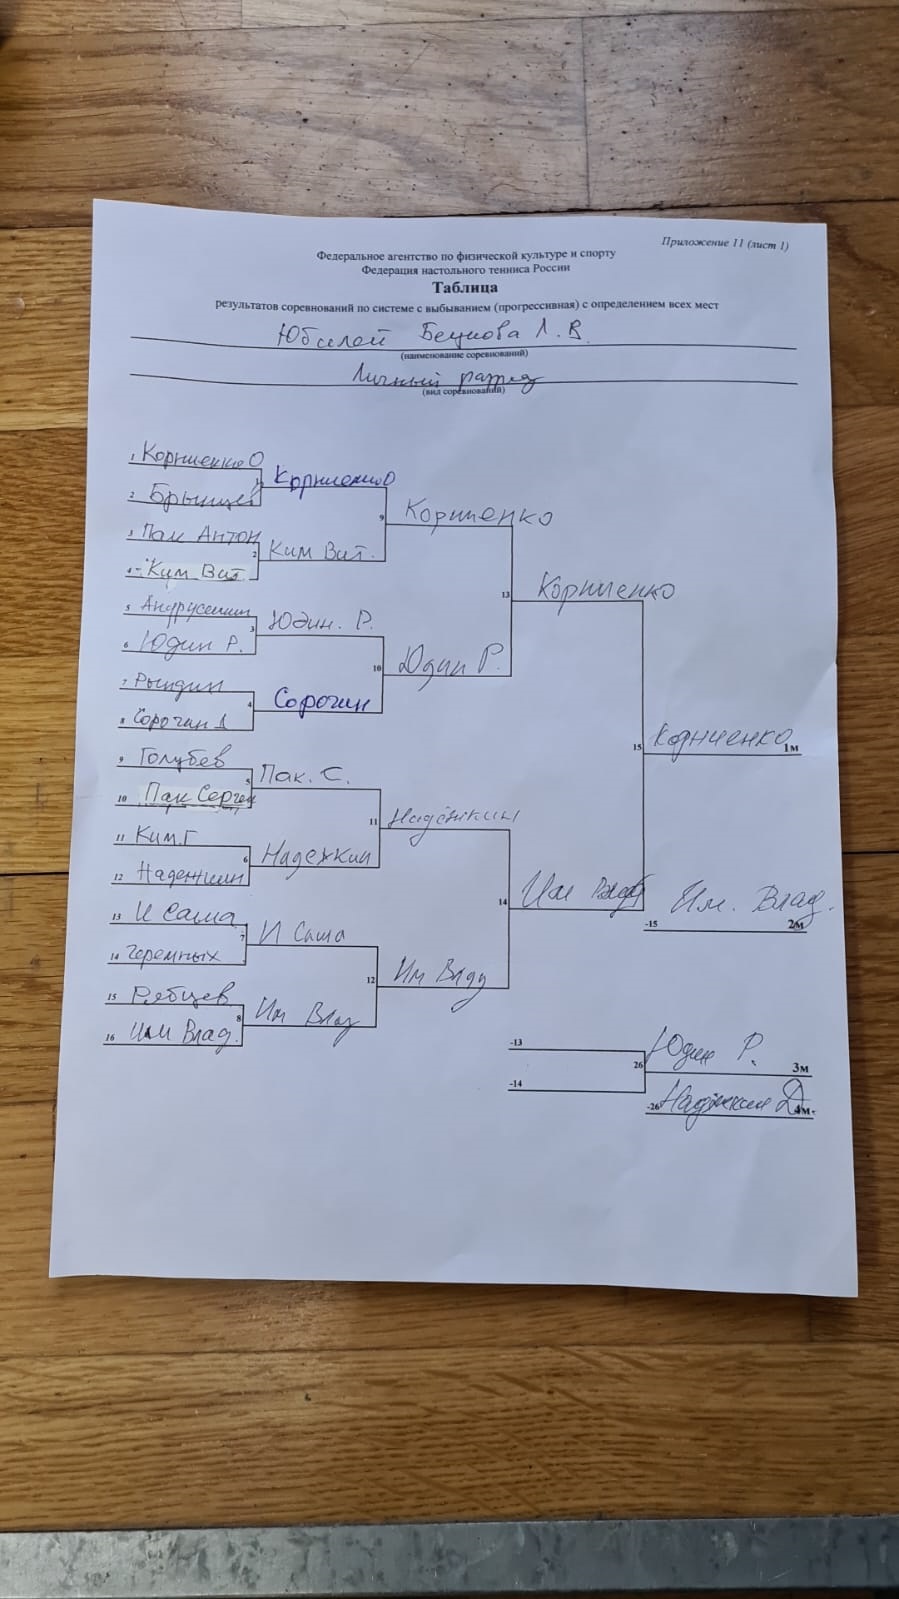 Приложение 11 (лист 1)
Федеральное агентство по физической культуре и спорту
Федерация настольного тенниса России
Таблица
результатов соревнований по системе с выбыванием (прогрессивная) с определением всех мест
Юбилей В.
(наименование соревнований)
Личный разряд
(вид соревнований)
1 Корниенко О
2 Брынцев
3 Пак Антон
4 Ким Вит
5 Андрусенко
6 Юдин Р.
7 Рындин
8 Сорочин Д
9 Голубев
10 Пак Сергей
11 Ким.Г
12 Надежкин
13 И Саша
14 Черемных
15 Рябцев
16 Им Влад.
1 Корниенко О
2 Ким Вит.
3 Юдин. Р.
4 Сорочин
5 Пак. С.
6 Надежкин
7 И Саша
8 Им Влад
9 Корниенко
10 Юдин Р.
11 Надёжкин
12 Им Влад
13 Корниенко
14 Им Влад
15 Корниенко 1м
-15 Им. Влад. 2м
-13
-14
26 Юдин Р. 3м
-26 Надёжкин Д 4м